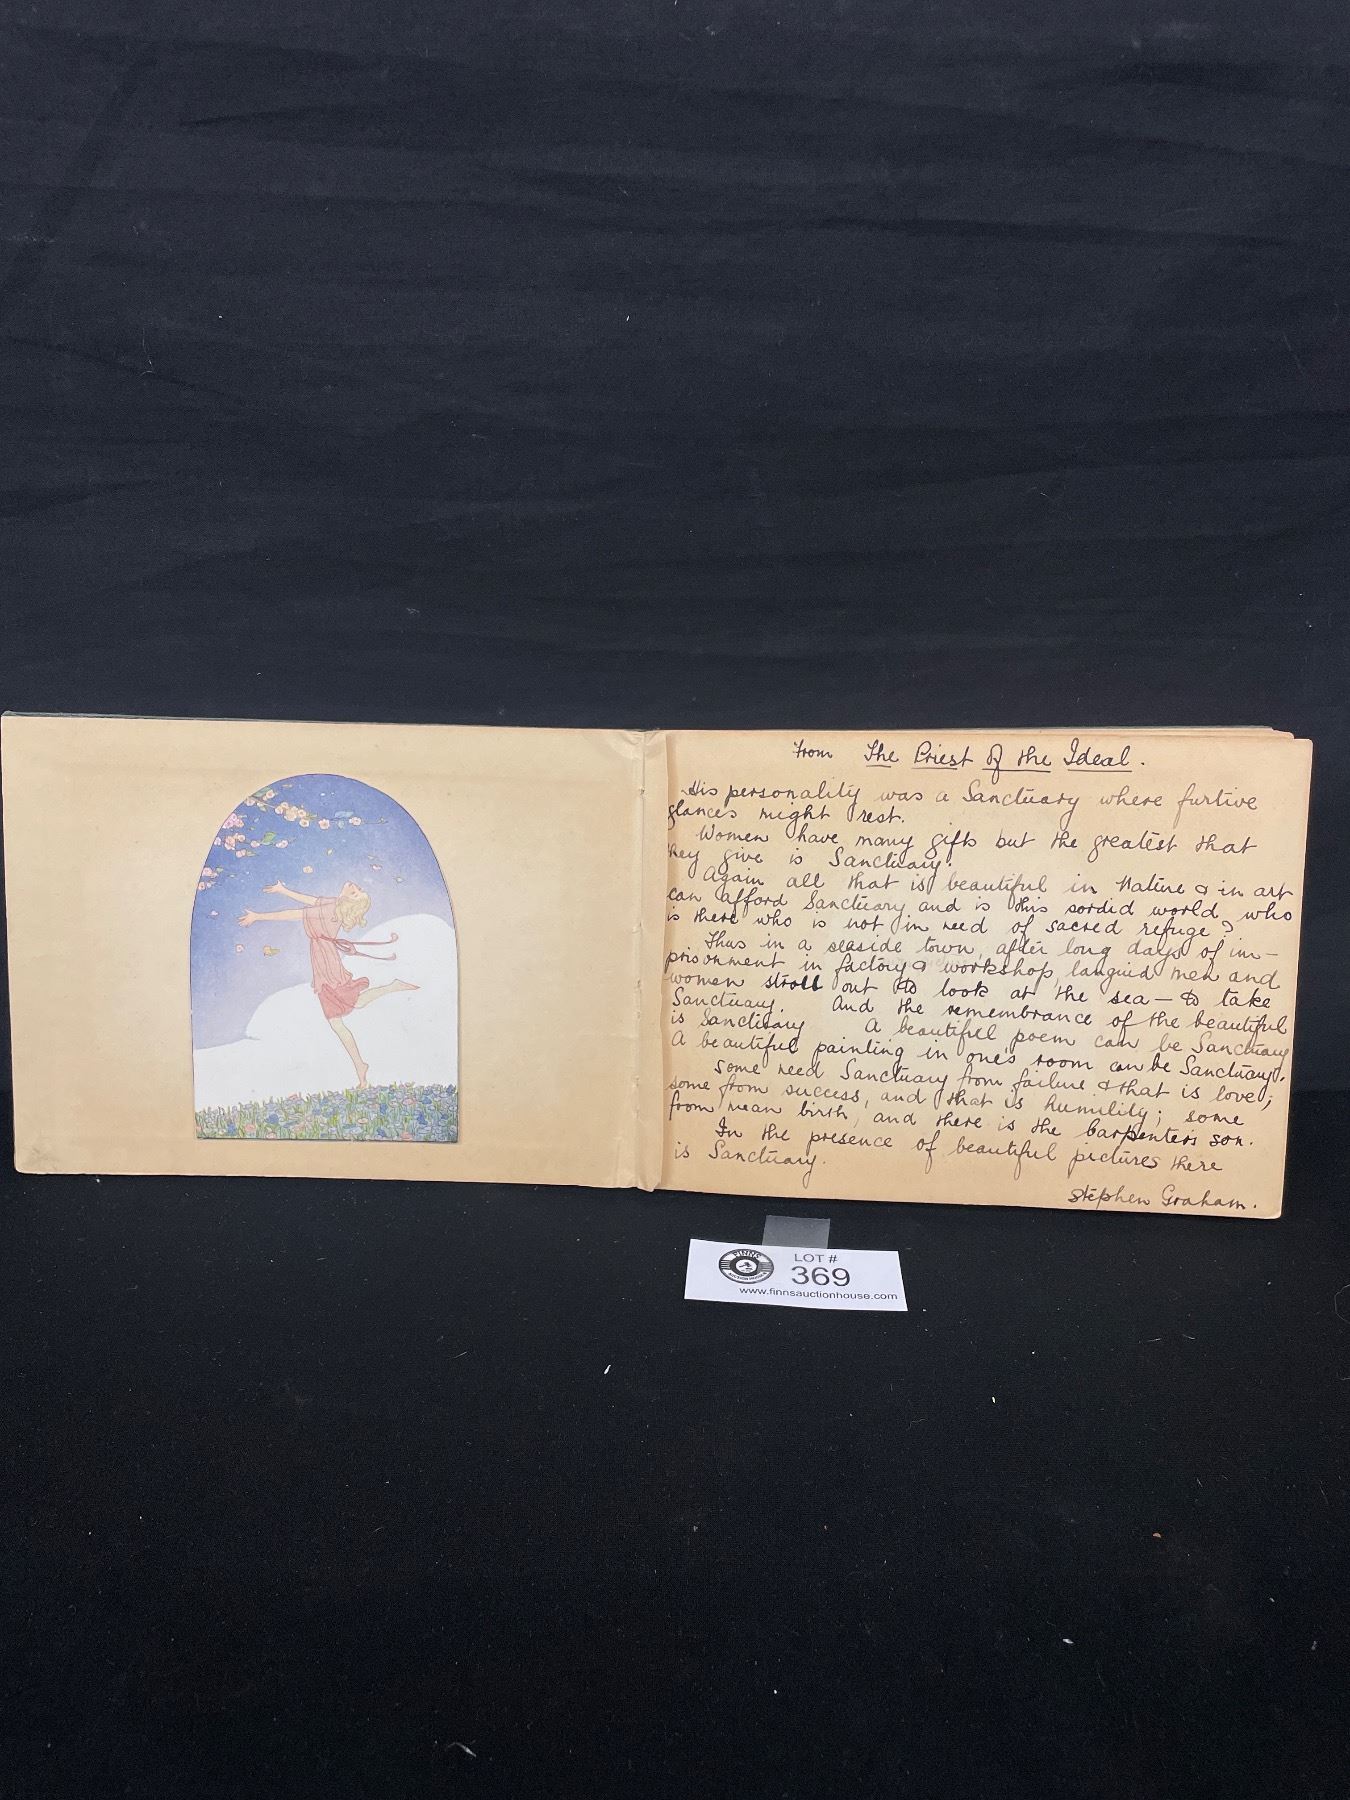 From The Priest of the Ideal.
His personality was a Sanctuary where furtive
glances might rest.
Women have many gifts but the greatest that
they give is Sanctuary.
Again all that is beautiful in Nature & in art
can afford Sanctuary and is this sordid world who
is there who is not in need of sacred refuge?
Thus in a seaside town, after long days of im-
prisonment in factory & workshop, languid men and
women stroll out to look at the sea — to take
Sanctuary. And the remembrance of the beautiful
is Sanctuary A beautiful poem can be Sanctuary
A beautiful painting in one's room can be Sanctuary.
Some need Sanctuary from failure & that is love;
some from success, and that is humility; some
from mean birth, and there is the Carpenter's son.
In the presence of beautiful pictures there
is Sanctuary.
Stephen Graham.
FINNS
AUCTION HOUSE
LOT #
369
www.finnsauctionhouse.com